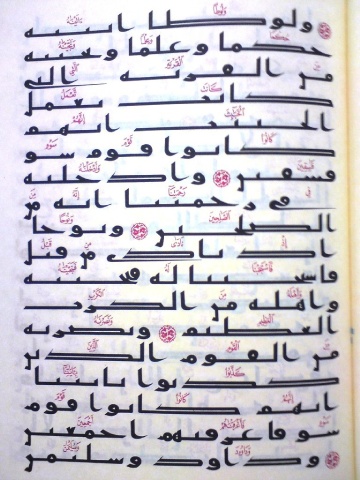 ولوطا اتينه
حكما وعلما ونجينه
من القرية التي
كانت تعمل
الخبئث انهم
كانوا قوم سو
فسقين وادخلنه
في رحمتنا انه من
الصلحين ونوحا
اذ نادى من قبل
فاستجبنا له فنجينه
واهله من الكرب
العظيم ونصرنه
من القوم الذين
كذبوا بايتنا
انهم كانوا قوم
سو فاغرقنهم اجمعين
وداود وسليمن